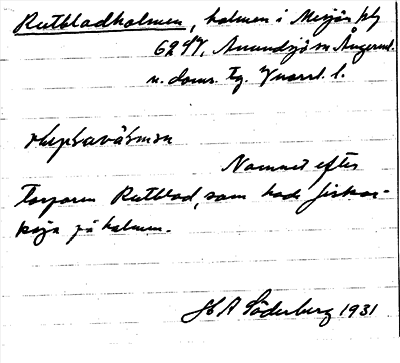 Rutbladholmen, holmen i Mesjön på
6247, Anundsjö sn Ångerml.
n. doms. tg.
Namnet efter
Torparen Rutblad, som hade fiskar-
koja på holmen.
H A Söderberg 1931